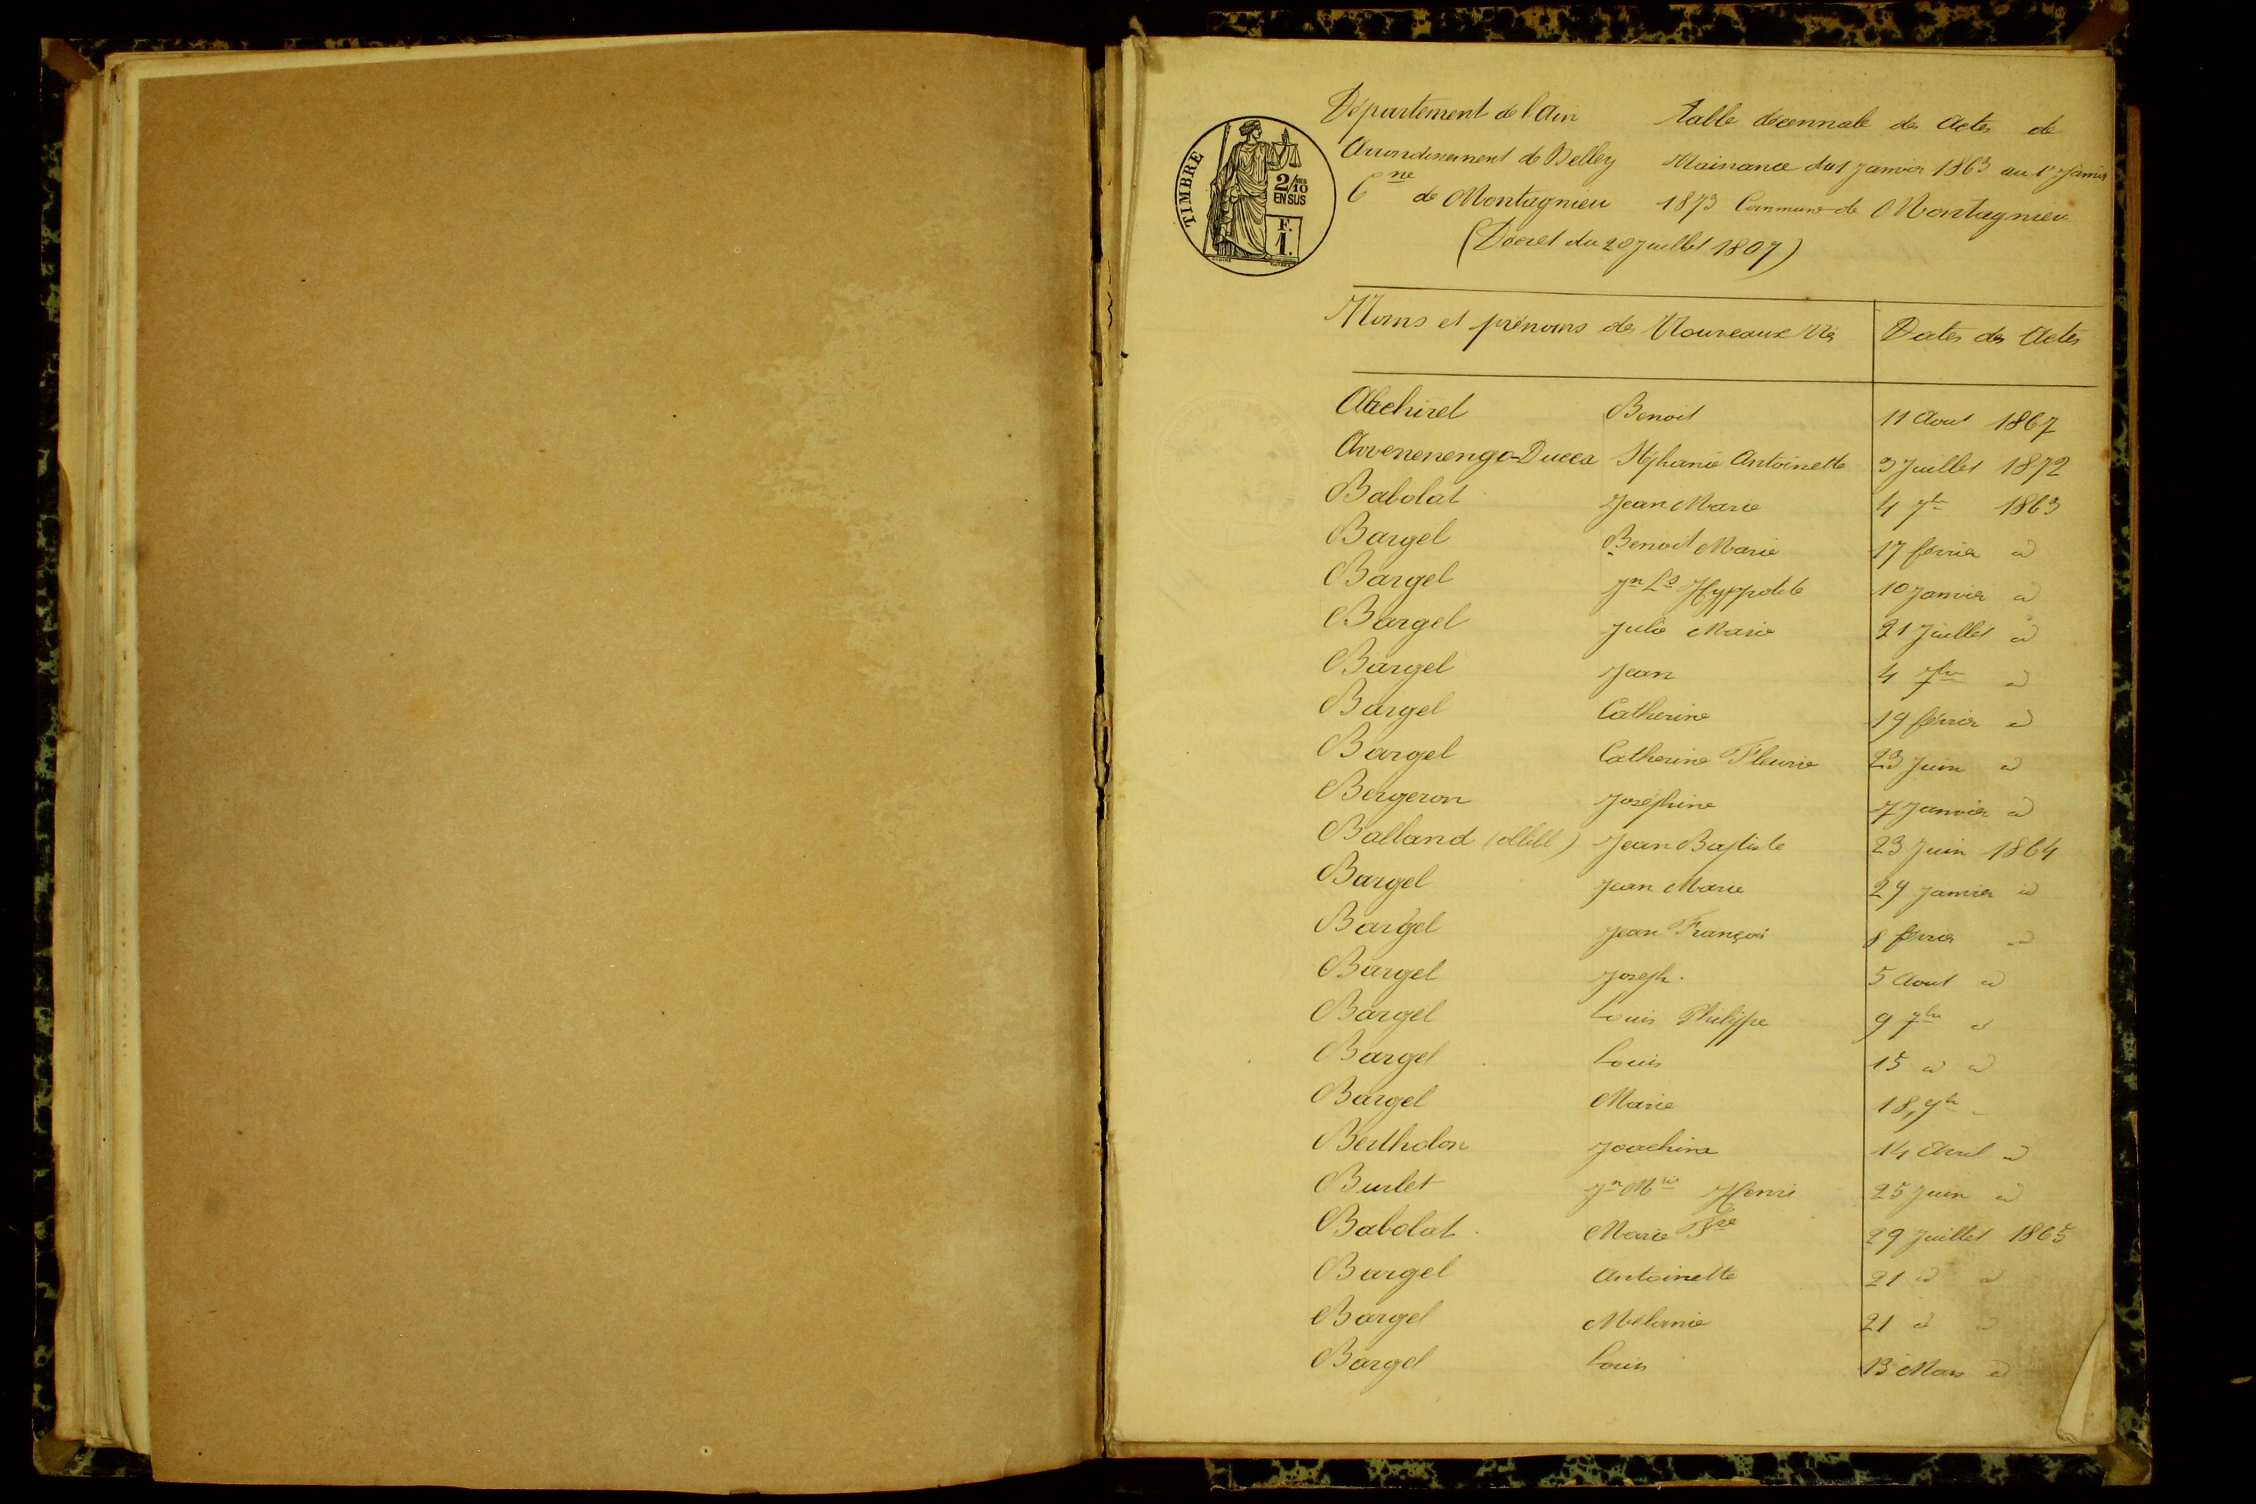 TIMBRE
2/10
EN SUS
F.
1.
Département de l'Ain
Arrondissement de Belley
Cne de Montagnieu
Table décennale des Actes de
Naissance du 1 Janvier 1863 au 1er Janvier
1873 Commune de Montagnieu
(Décret du 20 Juillet 1807)
Noms et prénoms des Nouveaux Nés Dates des Actes
Benoit 11 Aout 1867
Stéphanie Antoinette 3 Juillet 1872
Babolat Jean Marie 4 7bre 1863
Bargel Benoit Marie 17 février id
Bargel Jn Ls Hyppolite 10 Janvier id
Bargel Julie Marie 21 Juillet id
Bargel Jean 4 id
Bargel Catherine 19 février id
Bargel Catherine Fleurie 23 Juin id
Bergeron Joséphine 7 Janvier id
Balland Jean Baptiste 23 Juin 1864
Bargel Jean Marie 29 Janvier id
Bargel Jean François 8 février id
Bargel Joseph. 5 Aout id
Bargel Louis Philippe 9 id
Bargel Louis 15 id id
Bargel Marie 18
Bertholon Joachim 14 Avril id
Burlet Jn Mie Henri 25 Juin id
Babolat Marie 29 Juillet 1865
Bargel Antoinette 21 id id
Bargel Mélanie 21 id id
Bargel Louis 13 Mars id